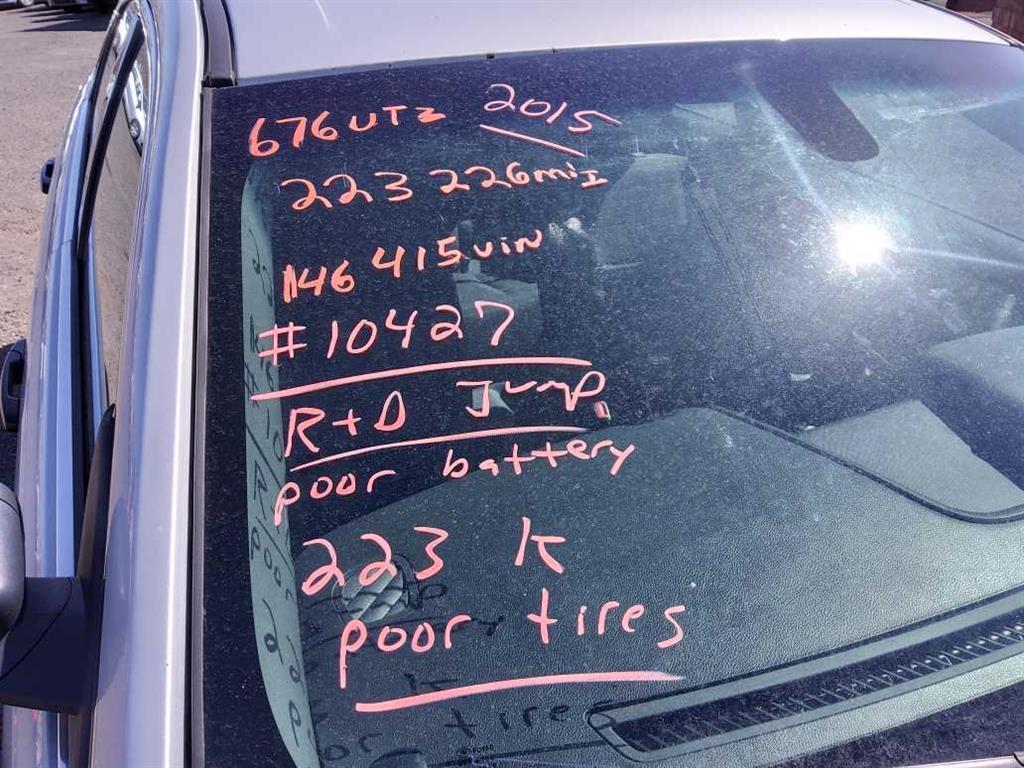 676UTZ 2015
223 226mi
146 415 VIN
#10427
R+D Jump
poor battery
223 K
poor tires